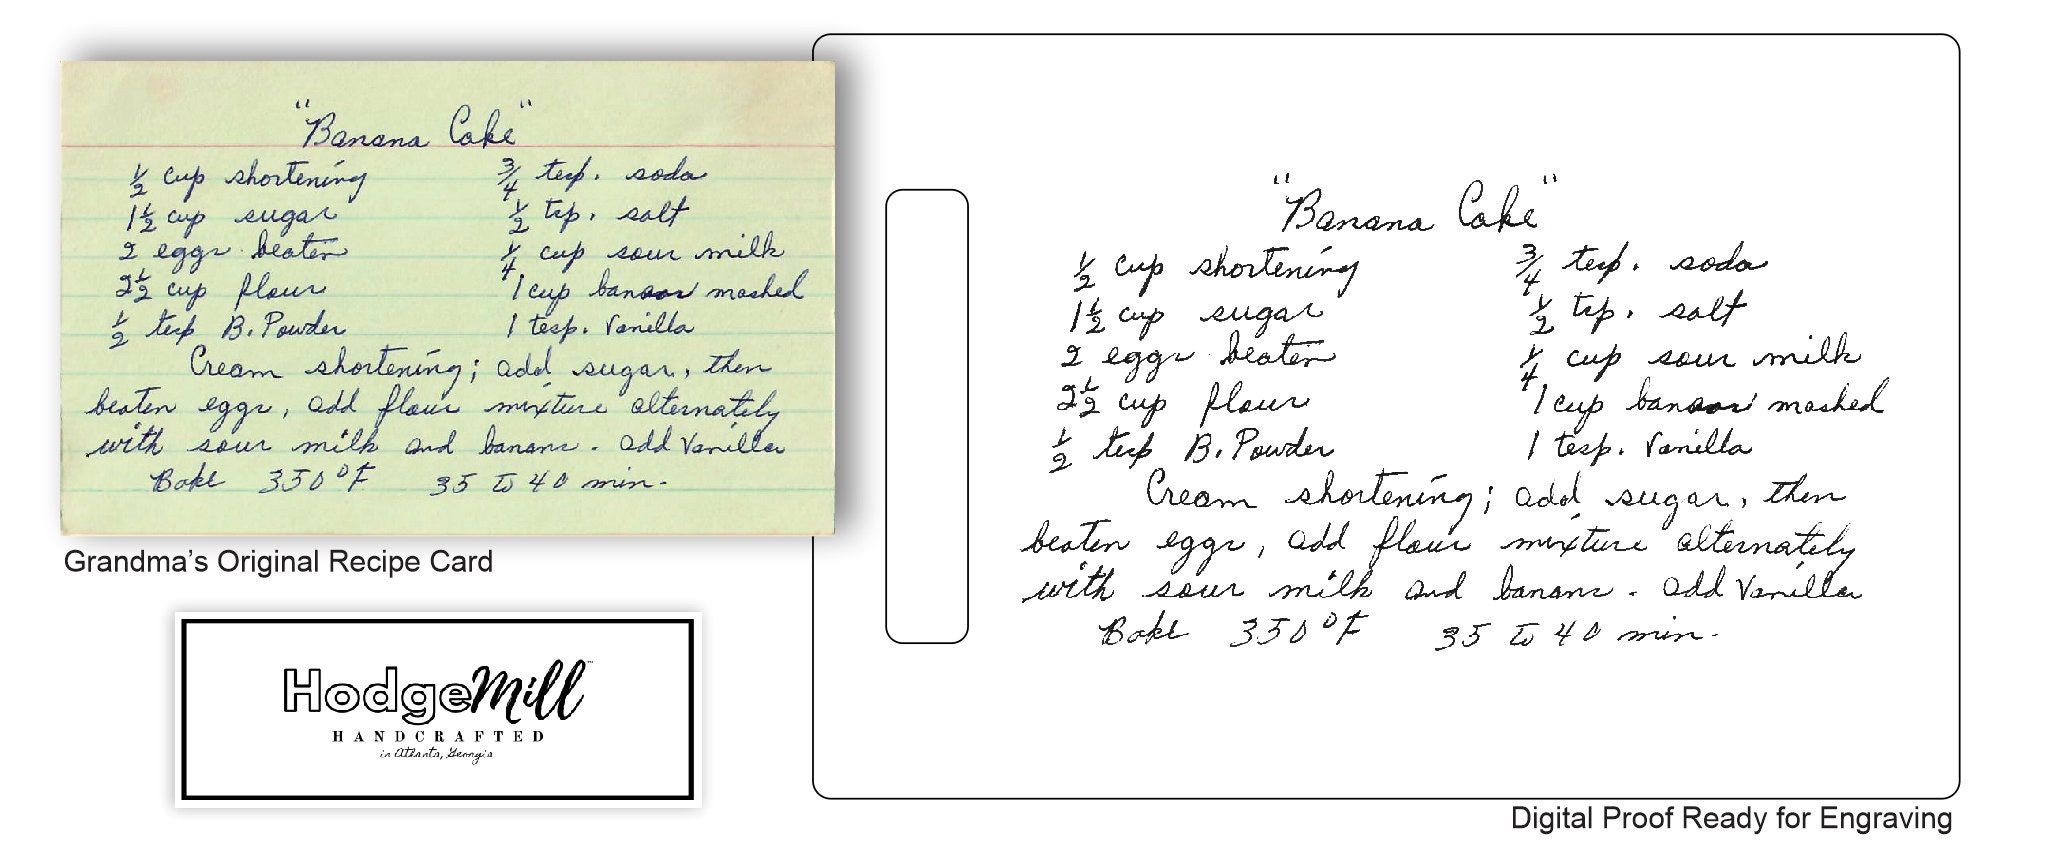 "Banana Cake"
1/2 cup shortening 3/4 tesp. soda
1 1/2 cup sugar 1/2 tsp. salt
2 eggs beaten 1/4 cup sour milk
2 1/2 cup flour 1 cup mashed
1/2 tesp B. Powder 1 tesp. Vanilla
Cream shortening; add sugar, then
beaten eggs, add flour mixture alternately
with sour milk and banana. add Vanilla
Bake 350°F 35 to 40 min.
Grandma's Original Recipe Card
HodgeMill™
HANDCRAFTED
in Atlanta, Georgia
"Banana Cake"
1/2 cup shortening 3/4 tesp. soda
1 1/2 cup sugar 1/2 tsp. salt
2 eggs beaten 1/4 cup sour milk
2 1/2 cup flour 1 cup mashed
1/2 tesp B. Powder 1 tesp. Vanilla
Cream shortening; add sugar, then
beaten eggs, add flour mixture alternately
with sour milk and banana. add Vanilla
Bake 350°F 35 to 40 min.
Digital Proof Ready for Engraving